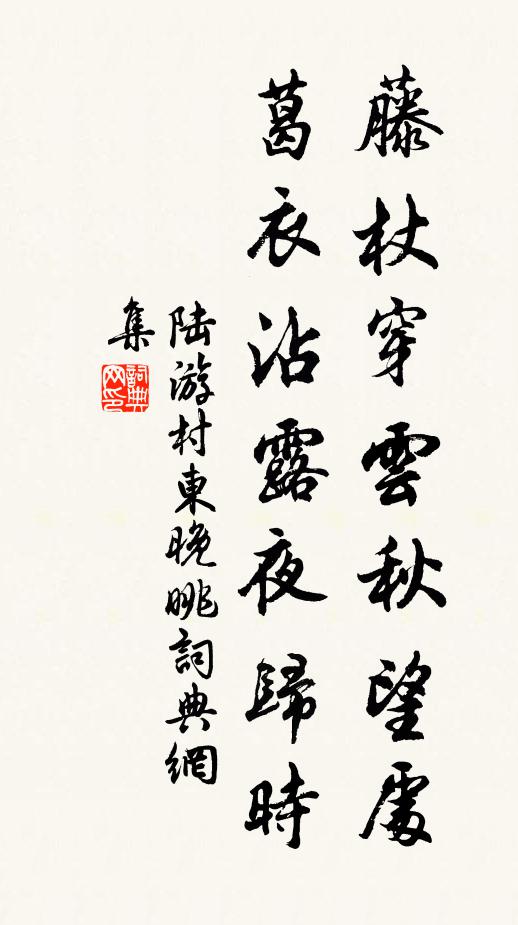 藤杖穿雲秋望處
葛衣沾露夜歸時
陸游村東晚眺詞典網
集
詞典
网印